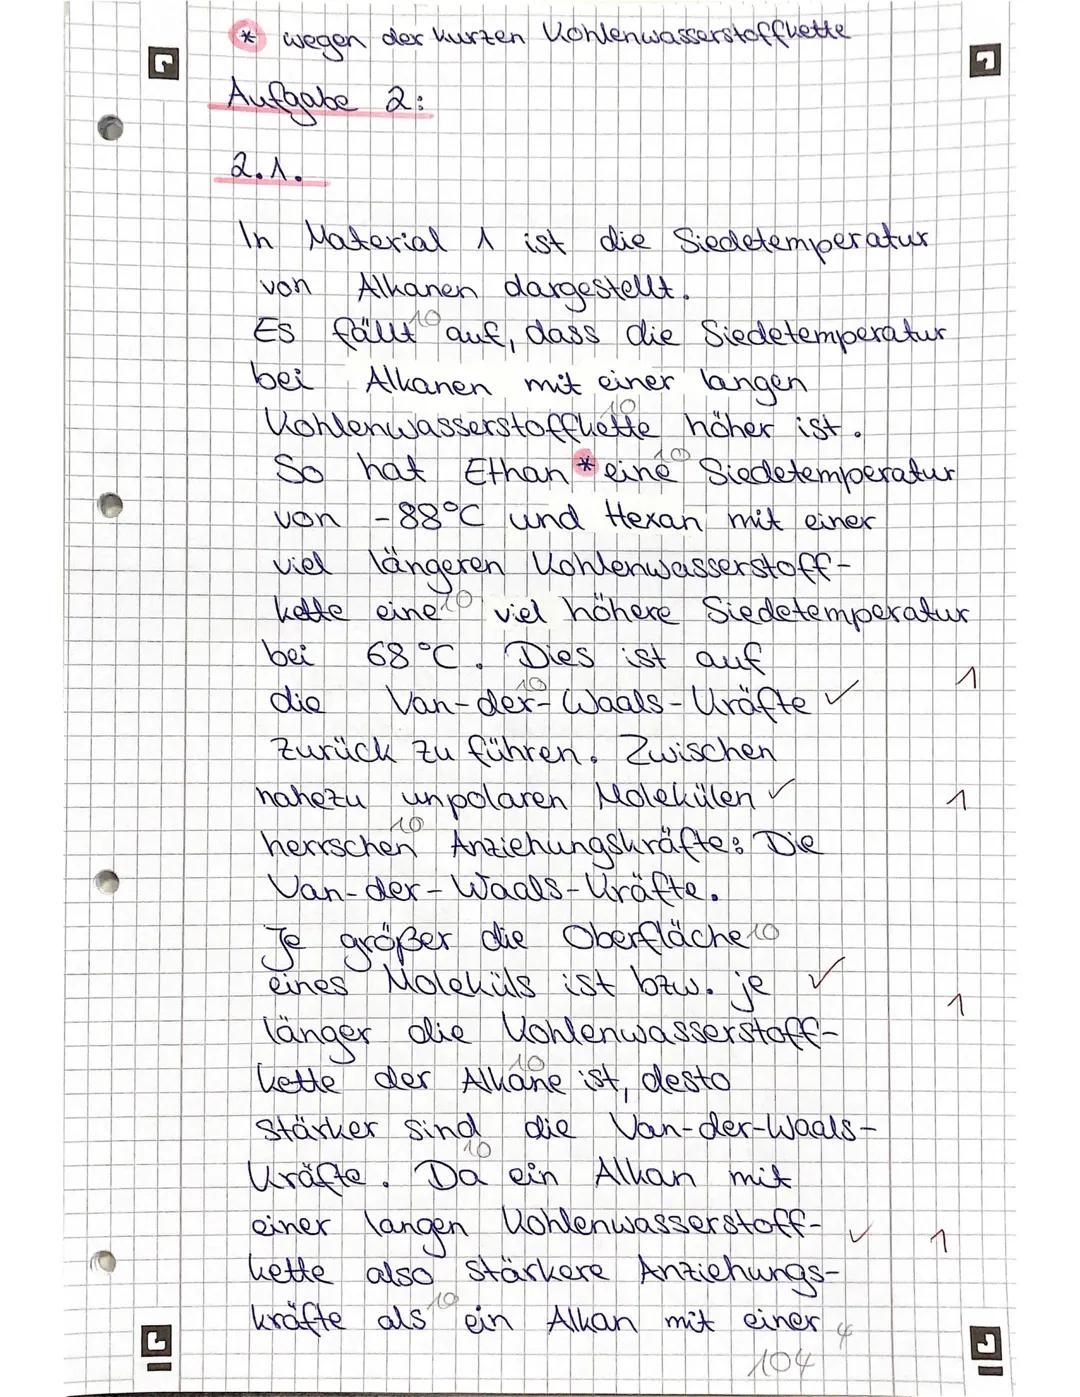 * wegen der kurzen Kohlenwasserstoffkette
Aufgabe 2:
2.1.
In Material 1 ist die Siedetemperatur
von Alkanen dargestellt.
Es fällt 10 auf, dass die Siedetemperatur
bei Alkanen mit einer langen
Kohlenwasserstoffkette 10 höher ist.
So hat Ethan * eine 10 Siedetemperatur
von -88°C und Hexan mit einer
viel längeren Kohlenwasserstoff-
kette eine 10 viel höhere Siedetemperatur
bei 68°C. Dies ist auf 1
die Van-der-10 Waals-Kräfte ✓
zurück zu führen. Zwischen
nahezu unpolaren Molekülen ✓ 1
herrschen 10 Anziehungskräfte: Die
Van-der-Waals-Kräfte.
Je größer die Oberfläche 10
eines Moleküls ist bzw. je ✓ 1
länger die Kohlenwasserstoff-
kette der 10 Alkane ist, desto
stärker sind die Van-der-Waals-
Kräfte. 10 Da ein Alkan mit
einer langen Kohlenwasserstoff- ✓ 1
kette also stärkere Anziehungs-
kräfte als 10 ein Alkan mit einer 4
104